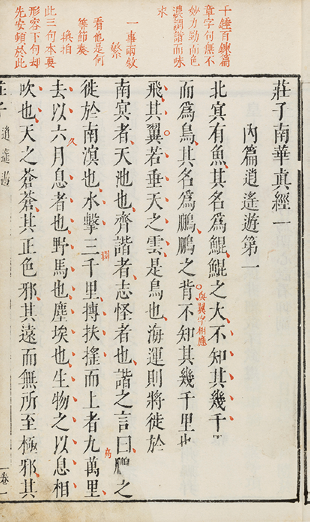 千錘百鍊篇
章字句無不
妙力勁而色
濃調諧而味
永
一事兩敘
繁
看他是何
等節奏
此三句本要
形容下句却
先安頓於此
莊子南華真經一
內篇逍遙遊第一
北冥有魚其名爲鯤鯤之大不知其幾千
而爲鳥其名爲鵬鵬之背不知其幾千里也
飛其翼若垂天之雲是鳥也海運則將徙於
南冥者天池也齊諧者志怪者也諧之言曰鵬之
徙於南溟也水擊三千里摶扶搖而上者九萬里
去以六月息者也野馬也塵埃也生物之以息相
吹也天之蒼蒼其正色邪其遠而無所至極邪其
莊子 逍遙遊 卷一